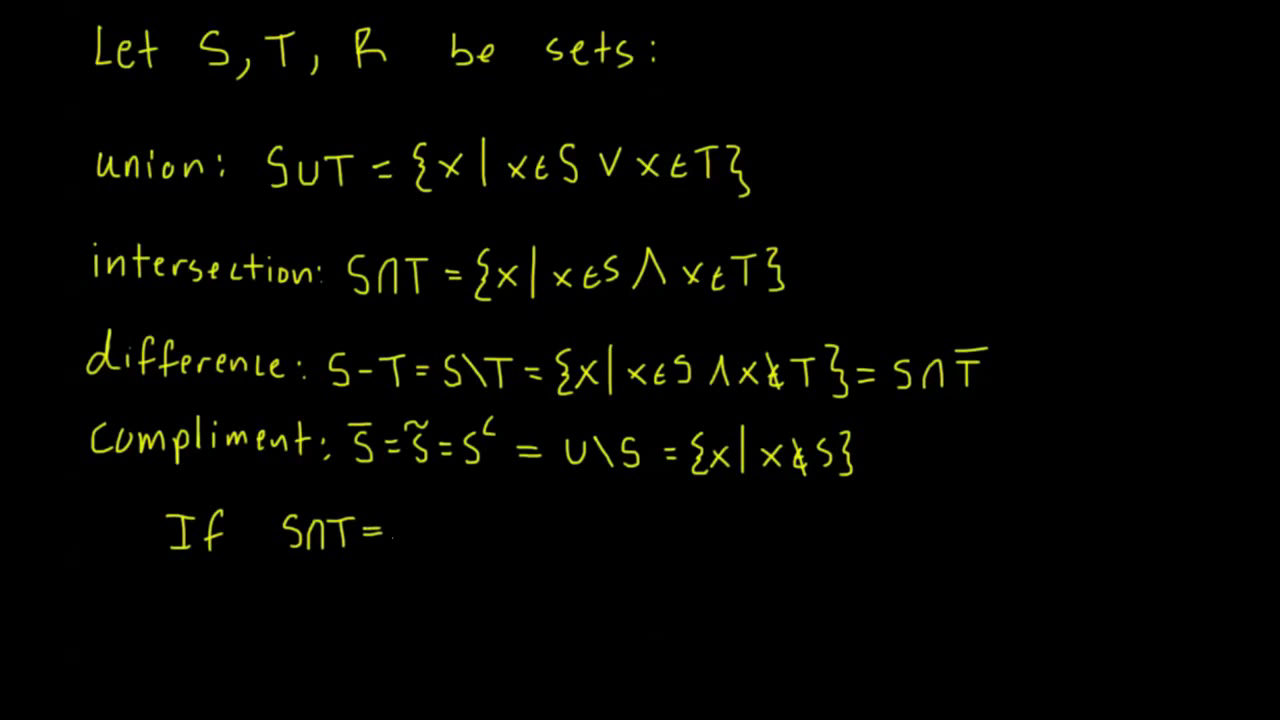 Let S, T, R be sets:
union: S∪T = {x | x∈S ∨ x∈T}
intersection: S∩T = {x | x∈S ∧ x∈T}
difference: S-T = S\T = {x | x∈S ∧ x∉T} = S∩T̅
Compliment: S̅ = S̃ = Sᶜ = U\S = {x | x∉S}
If S∩T =